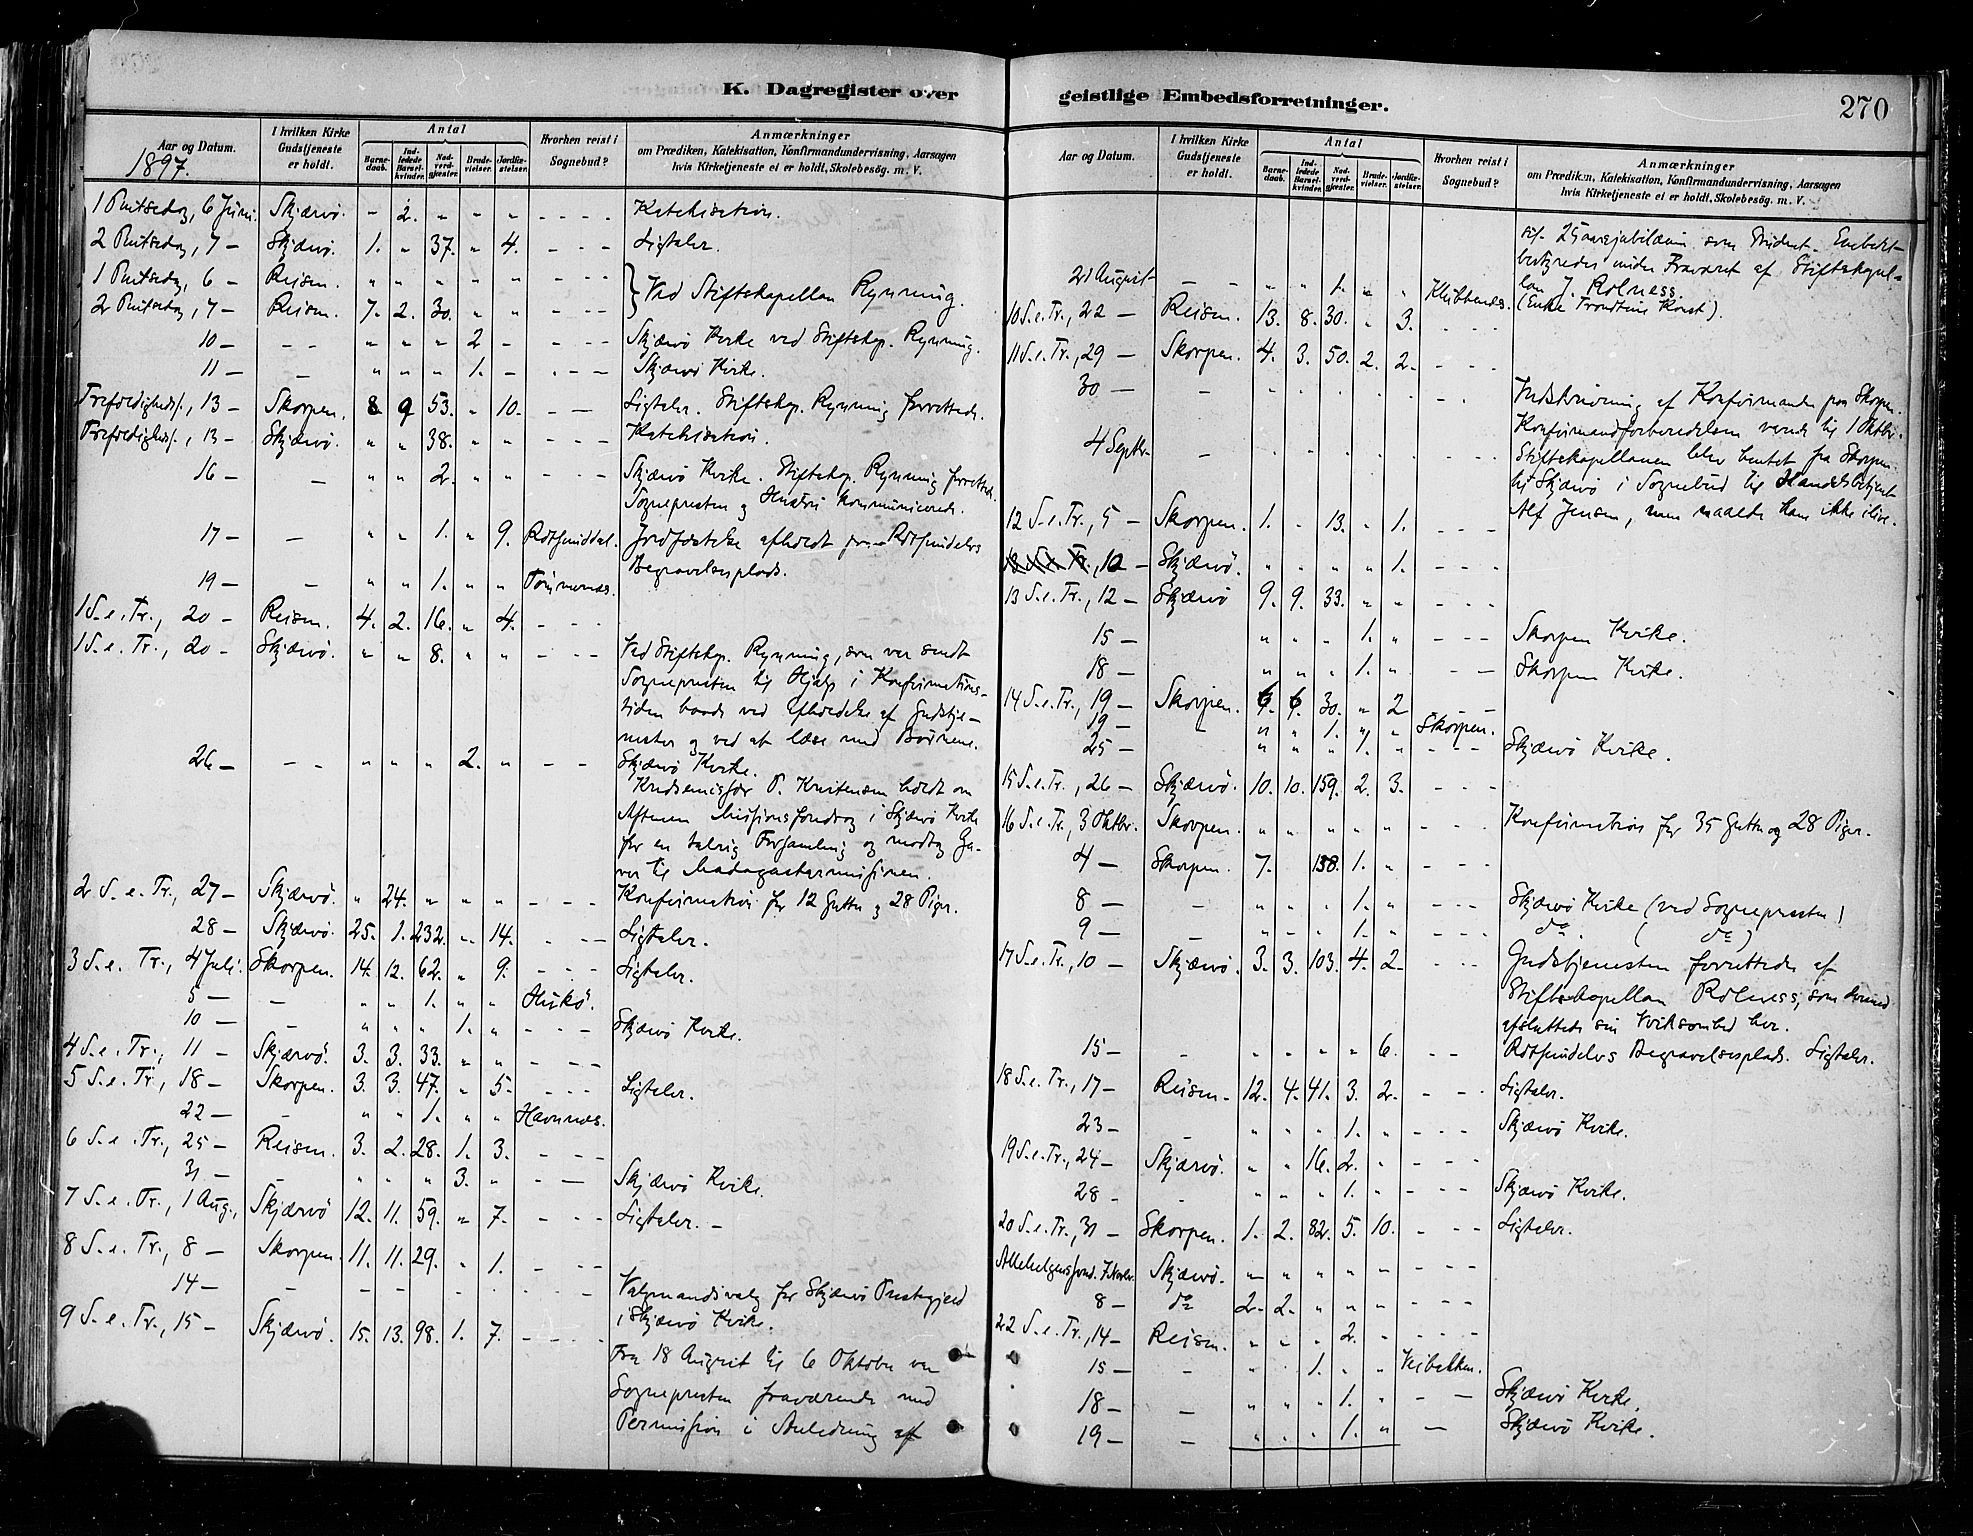 K. Dagregister over
Aar og Datum.
I hvilken Kirke Gudstjeneste er holdt.
Antal
Barne-daab.
Ind-ledede Barsel-kvinder.
Nad-verd-gjæster.
Brude-vielser.
Jordfæ-stelser.
Hvorhen reist i Sognebud?
Anmærkninger
om Prædiken, Katekisation, Konfirmandundervisning, Aarsagen
hvis Kirketjeneste ei er holdt, Skolebesög. m. V.
1897.
1 Pintsedag, 6 Juni. Skjærvö. - 2. " " " - - - - Katekisation.
2 Pintsedag, 7 - Skjærvö. 1. " 37. " 4. - - - Ligtaler.
1 Pintsedag, 6 - Reisen. " " " " " - - - } Ved Stiftskapellan Rynning.
2 Pintsedag, 7 - Reisen. 7. 2. 30. " " - - -
10 - - - " " " 2 - - - - Skjærvö Kirke ved Stiftskap. Rynning.
11 - - " " " 1. - - - - Skjærvö Kirke.
Trefoldighedsf., 13 - Skorpen. 8 9 53. " 10. - - Ligtaler. Stiftskap. Rynning forrettede.
Trefoldighedsf., 13 - Skjærvö. " " 38. " " - - - Katekisation.
16 - - " " 2. " " - - - Skjærvö Kirke. Stiftskap. Rynning forrettede.
Sognepresten og Hustru kommunicerede.
17 - - " " 1. " 9. Rotsunddal. Jordfæstelse afholdt paa Rotsundelvs
Begravelsesplads.
19 - - " " 1. " " Tömmernes.
1 S. e. Tr., 20 - Reisen. 4. 2. 16. " 4. - - -
1 S. e. Tr., 20 - Skjærvö. " " 8. " " - - - Ved Stiftskap. Rynning, som var sendt
Sognepresten til Hjælp i Konfirmations-
tiden baade ved Afholdelse af Gudstje-
nester og ved at læse med Börnene.
26 - - - " " " 2. " - - Skjærvö Kirke.
P. Kristensen holdt om
Aftenen Missionsforedrag i Skjærvö Kirke
for en talrig Forsamling og modtog Ga-
ver til Madagaskarmissionen.
2 S. e. Tr., 27 - Skjærvö. " 24. " " " - - - Konfirmation for 12 Gutter og 28 Piger.
28 - Skjærvö. 25. 1. 232. " 14. - - - Ligtaler.
3 S. e. Tr., 4 Juli. Skorpen. 14. 12. 62. " 9. - - - Ligtaler.
5 - - " " 1. " " Hukö.
10 - - " " " 1. " - - - Skjærvö Kirke.
4 S. e. Tr., 11 - Skjærvö. 3. 3. 33. " " - - -
5 S. e. Tr., 18 - Skorpen. 3. 3. 47. " 5. - - - Ligtaler.
22 - - " " 1. " " Havnnes.
6 S. e. Tr., 25 - Reisen. 3. 2. 28. 1. 3. - - -
31 - - " " " 3. " - - Skjærvö Kirke.
7 S. e. Tr., 1 Aug., Skjærvö 12. 11. 59. " 7. - - - Ligtaler. -
8 S. e. Tr., 8 - Skorpen. 11. 11. 29. " 1. - - -
14 - - - - - - - - - - Valgmandsvalg for Skjærvö Prestegjeld
i Skjærvö Kirke.
9 S. e. Tr., 15 - Skjærvö. 15. 13. 98. 1. 7. - - - -
Fra 18 August til 6 Oktober var
Sognepresten fraværende med
Permission i Anledning af
geistlige Embedsforretninger.
270
Aar og Datum.
I hvilken Kirke Gudstjeneste er holdt.
Antal
Barne-daab.
Ind-ledede Barsel-kvinder.
Nad-verd-gjæster.
Brude-vielser.
Jordfæ-stelser.
Hvorhen reist i Sognebud?
Anmærkninger
om Prædiken, Katekisation, Konfirmandundervisning, Aarsagen
hvis Kirketjeneste ei er holdt, Skolebesög. m. V.
sit 25aarsjubilæum som Student. Embedet
bestyredes under Fraværet af Stiftskapel-
lan J. Rolness.
21 August - - " " 1. " " Klubbenes. (Enke Trondtine Kvist).
10 S. e. Tr., 22 - Reisen. 13. 8. 30. " 3. - - -
11 S. e. Tr., 29 - Skorpen. 4. 3. 50. 2. 2. - - -
30 - - - - - - - - - Indskrivning af Konfirmander paa Skorpen.
Konfirmandforberedelsen varede til 1 Oktbr.
4 Septbr. - - - - - - - - - Stiftskapellanen blev hentet fra Skorpen
til Skjærvö i Sognebud til Handelsbetjent
Alf Jensen, men naaede ham ikke ilive.
12 S. e. Tr., 5 - Skorpen. 1. - 13. " 1. - - -
10 - Skjærvö. " " " " 1. - - -
13 S. e. Tr., 12 - Skjærvö 9. 9. 33. " " - - -
15 - " " " 1. " - - - Skorpen Kirke.
18 - " " " 1. " - - Skorpen Kirke.
14 S. e. Tr., 19 - Skorpen. 6. 6. 30. " 2
19 - - " " 1. " " Skorpen.
25 - " " " 1. " - - - Skjærvö Kirke.
15 S. e. Tr., 26 - Skjærvö. 10. 10. 159. 2. 3. - - -
16 S. e. Tr., 3 Oktbr. Skorpen. " " " " " - - - Konfirmation for 35 Gutter og 28 Piger.
4 - Skorpen. 7. 138. 1. " - - -
8 - - " " " 1. " - - - Skjærvö Kirke (ved Sognepresten)
9 - - " " " 1. " - - - do. ( do )
17 S. e. Tr., 10 - Skjærvö. 3. 3. 103. 4. 2. - - Gudstjenesten forrettedes af
Stiftskapellan Rolness, som dermed
afsluttede sin Virksomhed her.
15 - - " " " " 6. - - Rotsundelvs Begravelsesplads. Ligtaler.
18 S. e. Tr., 17 - Reisen. 12. 4. 41. 3. 2. - - - Ligtaler.
23 - - " " " 1. " - - - Skjærvö Kirke.
19 S. e. Tr., 24 - Skjærvö. " " 16. 2. " - - -
28 - - " " " 1. " - - - Skjærvö Kirke.
20 S. e. Tr., 31 - Skorpen. 1. 2. 82. 5. 10. - - - Ligtaler.
Allehelgenssönd. 7 Novbr. Skjærvö. " " " " " - - -
8 - do 2. 2. " " " - - -
22 S. e. Tr., 14 - Reisen. " " " 2. " - - -
15 - - " " 1. " " Veibakken.
18 - - " " " 1. " - - Skjærvö Kirke.
19 - - " " " 1. " - Skjærvö Kirke.